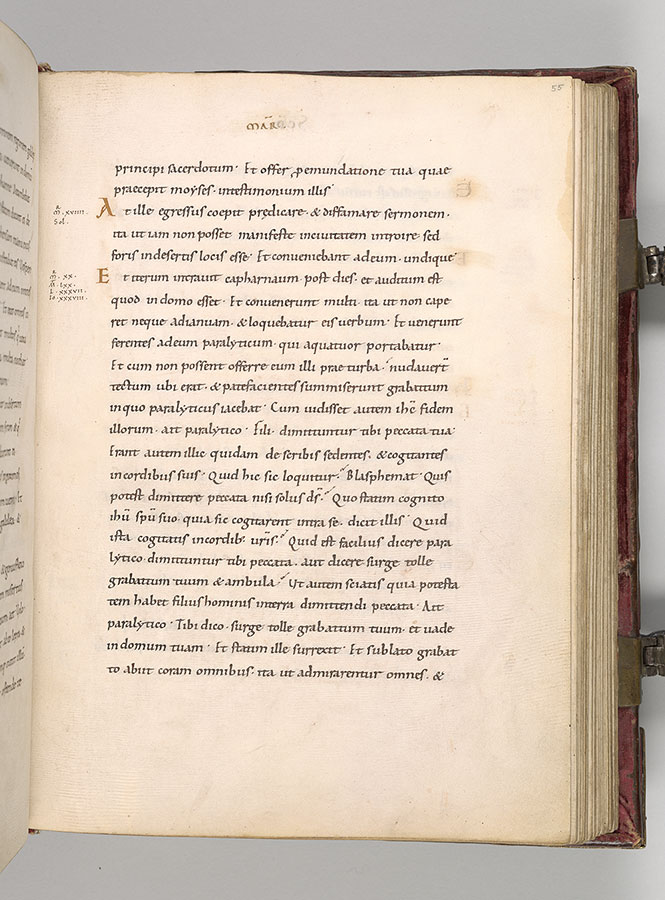 55
MAR̄C
principi sacerdotum · Et offer, ꝓemundatione tua quae
praecepit moyses · intestimonium illis
At ille egressus coepit prędicare · & diffamare sermonem ·
ita ut iam non posset manifeste inciuitatem introire sed
foris indesertis locis esse · Et conueniebant adeum · undique
Et iterum intrauit capharnaum · post dies · et auditum est
quod in domo esset · Et conuenerunt multi · ita ut non cape
ret neque adianuam · & loquebatur eis uerbum · Et uenerunt
ferentes adeum paralyticum · qui aquatuor portabatur ·
Et cum non possent offerre eum illi prae turba · nudauer̄t
tectum ubi erat · & patefacientes summiserunt grabattum
inquo paralyticus iacebat · Cum uidisset autem ihc̄ fidem
illorum · ait paralytico · Fili · dimittuntur tibi peccata tua ·
Erant autem illic quidam de scribis sedentes · & cogitantes
incordibus suis · Quid hic sic loquitur? Blasphemat · Quis
potest dimittere peccata nisi solus ds̄? Quo statim cognito
ihū spū suo · quia sic cogitarent intra se · dicit illis · Quid
ista cogitatis incordib; ur̄is? Quid est facilius dicere para
lytico · dimittuntur tibi peccata · aut dicere surge tolle
grabattum tuum & ambula? Ut autem sciatis quia potesta
tem habet filius hominis interra dimittendi peccata · Ait
paralytico · Tibi dico · surge tolle grabattum tuum · et uade
in domum tuam · Et statim ille surrexit · Et sublato grabat
to abiit coram omnibus · ita ut admirarentur omnes · &
m̄ · xviiii ·
Sol ·
m̄ · xx ·
M · lxx ·
L · xxxvii ·
Io · xxxviii ·